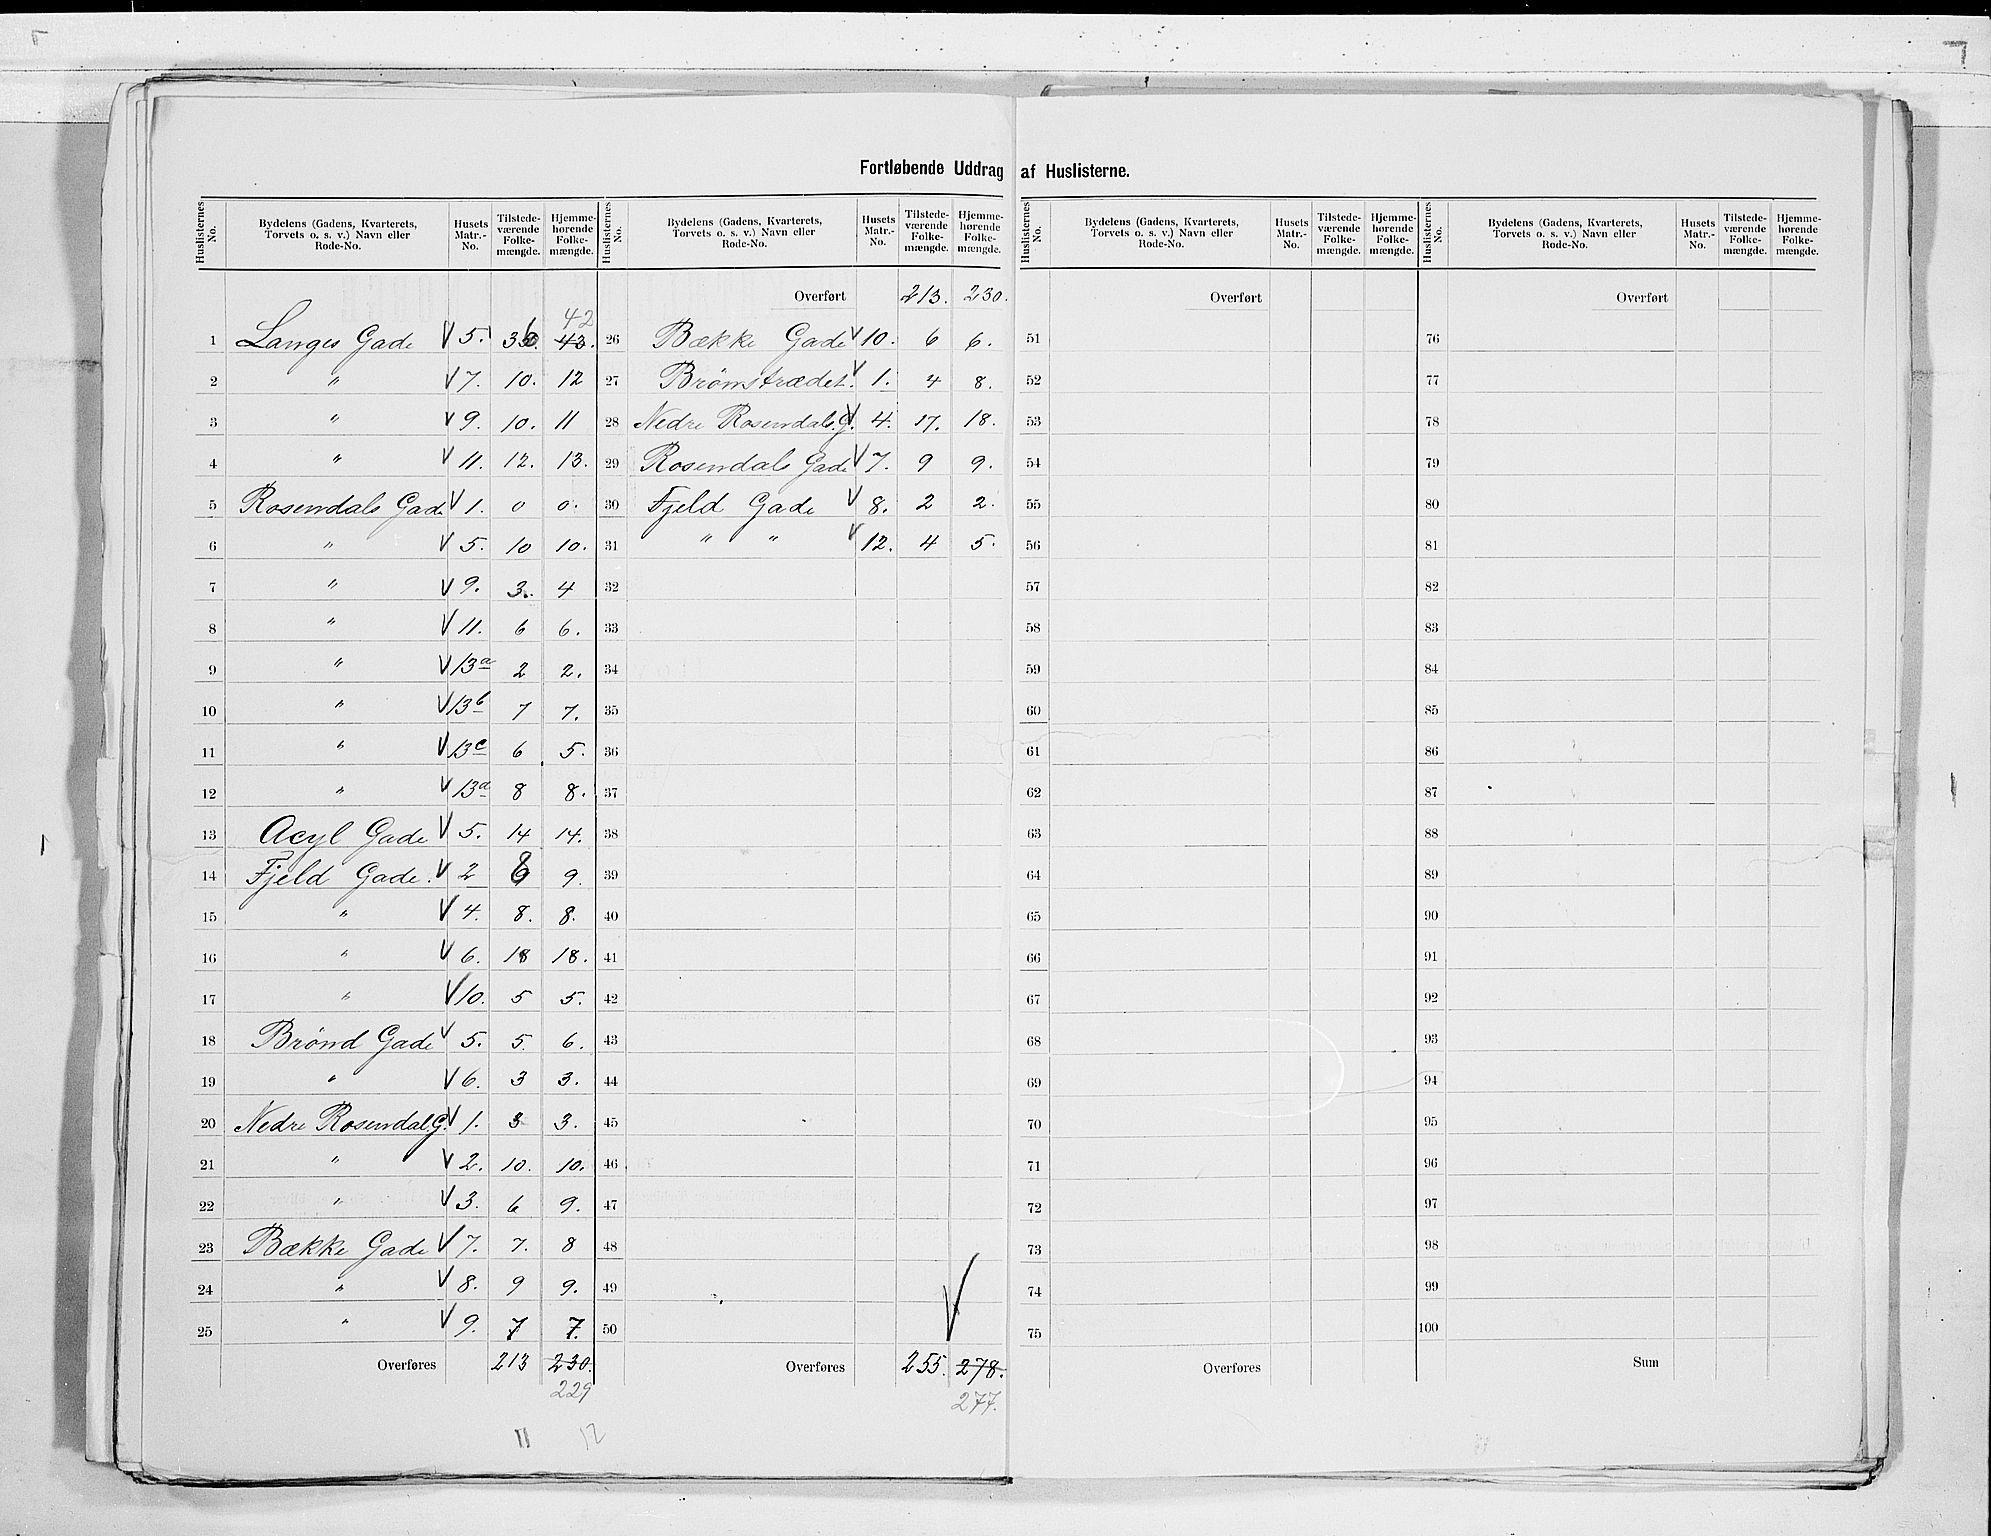 Fortløbende Uddrag af Huslisterne.
Huslisternes No. Bydelens (Gadens, Kvarterets, Torvets o. s. v.) Navn eller Rode-No. Husets Matr.-No. Tilstede-værende Folke-mængde. Hjemme-hørende Folke-mængde.
Huslisternes No. Bydelens (Gadens, Kvarterets, Torvets o. s. v.) Navn eller Rode-No. Husets Matr.-No. Tilstede-værende Folke-mængde. Hjemme-hørende Folke-mængde.
Huslisternes No. Bydelens (Gadens, Kvarterets, Torvets o. s. v.) Navn eller Rode-No. Husets Matr.-No. Tilstede-værende Folke-mængde. Hjemme-hørende Folke-mængde.
Huslisternes No. Bydelens (Gadens, Kvarterets, Torvets o. s. v.) Navn eller Rode-No. Husets Matr.-No. Tilstede-værende Folke-mængde. Hjemme-hørende Folke-mængde.
Overført 213. 230. Overført Overført
42
1 Langes Gade V 5. 36. 43. 26 Bække Gade V 10. 6 6. 51 76
2 " V 7. 10. 12 27 Brømstrædet. V 1. 4 8. 52 77
3 " V 9. 10. 11 28 Nedre Rosendals.G. V 4. 17. 18. 53 78
4 " V 11. 12. 13. 29 Rosendals Gade V 7. 9 9. 54 79
5 Rosendals Gade V 1. 0 0. 30 Fjeld Gade V 8. 2 2. 55 80
6 " V 5. 10 10. 31 " " V 12. 4 5. 56 81
7 " V 9. 3. 4 32 57 82
8 " V 11. 6 6. 33 58 83
9 " V 13a 2 2. 34 59 84
10 " V 13b 7 7. 35 60 85
11 " V 13c 6 5. 36 61 86
12 " V 13d 8 8. 37 62 87
13 Acyl Gade V 5. 14 14. 38 63 88
14 Fjeld Gade. V 2 8 9. 39 64 89
15 " V 4. 8. 8. 40 65 90
16 " V 6. 18 18. 41 66 91
17 " V 10. 5 5. 42 67 92
18 Brønd Gade V 5. 5 6. 43 68 93
19 " V 6. 3 3. 44 69 94
20 Nedre Rosendal.G. V 1. 3 3. 45 70 95
21 " V 2. 10. 10. 46 71 96
22 " V 3. 6 9. 47 72 97
23 Bække Gade V 7. 7. 8 48 73 98
24 " V 8. 9 9. 49 74 99
25 " V 9. 7 7. 50 V 75 100
Overføres 213 230. Overføres 255. 278. Overføres Sum
229 277.
11 12